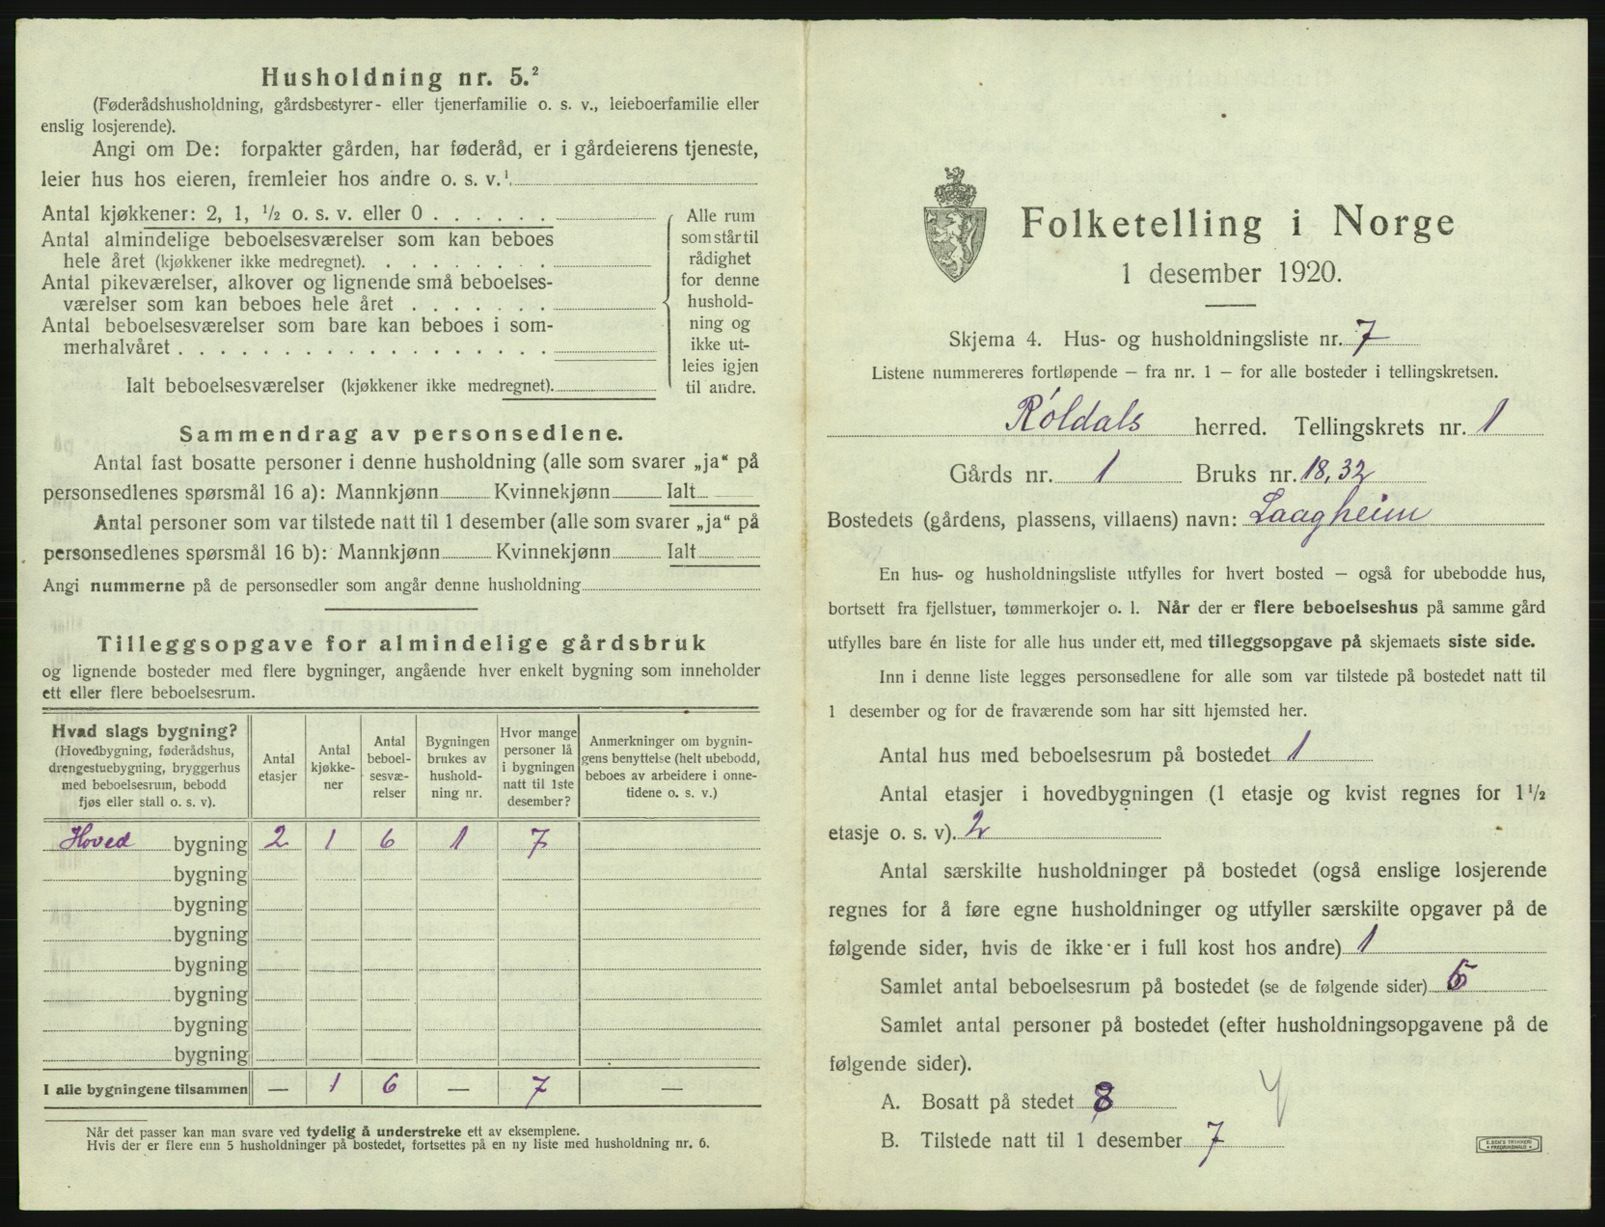 Husholdning nr. 5.²
(Føderådshusholdning, gårdsbestyrer- eller tjenerfamilie o. s. v., leieboerfamilie eller
enslig losjerende).
Angi om De: forpakter gården, har føderåd, er i gårdeierens tjeneste,
leier hus hos eieren, fremleier hos andre o. s. v.¹
Antal kjøkkener: 2, 1, ½ o. s. v. eller 0 . . . . . .
Antal almindelige beboelsesværelser som kan beboes
hele året (kjøkkener ikke medregnet). . . . . . . . .
Antal pikeværelser, alkover og lignende små beboelses-
værelser som kan beboes hele året . . . . . . .
Antal beboelsesværelser som bare kan beboes i som-
merhalvåret . . . . . . . . . . . . . . . . . .
Ialt beboelsesværelser (kjøkkener ikke medregnet).
Alle rum
som står til
rådighet
for denne
hushold-
ning og
ikke ut-
leies igjen
til andre.
Sammendrag av personsedlene.
Antal fast bosatte personer i denne husholdning (alle som svarer „ja“ på
personsedlenes spørsmål 16 a): Mannkjønn Kvinnekjønn Ialt
Antal personer som var tilstede natt til 1 desember (alle som svarer „ja“ på
personsedlenes spørsmål 16 b): Mannkjønn Kvinnekjønn Ialt
Angi nummerne på de personsedler som angår denne husholdning
Tilleggsopgave for almindelige gårdsbruk
og lignende bosteder med flere bygninger, angående hver enkelt bygning som inneholder
ett eller flere beboelsesrum.
Hvad slags bygning?
(Hovedbygning, føderådshus,
drengestuebygning, bryggerhus
med beboelsesrum, bebodd
fjøs eller stall o. s. v).
Antal
etasjer
Antal
kjøkke-
ner
Antal
beboel-
sesvæ-
relser
Bygningen
brukes av
hushold-
ning nr.
Hvor mange
personer lå
i bygningen
natt til 1ste
desember?
Anmerkninger om bygnin-
gens benyttelse (helt ubebodd,
beboes av arbeidere i onne-
tidene o. s. v.)
Hoved bygning 2 1 6 1 7
bygning
bygning
bygning
bygning
bygning
bygning
bygning
I alle bygningene tilsammen — 1 6 — 7 —
Når det passer kan man svare ved tydelig å understreke ett av eksemplene.
Hvis der er flere enn 5 husholdninger på bostedet, fortsettes på en ny liste med husholdning nr. 6.
Folketelling i Norge
1 desember 1920.
Skjema 4. Hus- og husholdningsliste nr. 7
Listene nummereres fortløpende — fra nr. 1 — for alle bosteder i tellingskretsen.
Røldals herred. Tellingskrets nr. 1
Gårds nr. 1 Bruks nr. 18, 32
Bostedets (gårdens, plassens, villaens) navn: Laagheim
En hus- og husholdningsliste utfylles for hvert bosted — også for ubebodde hus,
bortsett fra fjellstuer, tømmerkojer o. l. Når der er flere beboelseshus på samme gård
utfylles bare én liste for alle hus under ett, med tilleggsopgave på skjemaets siste side.
Inn i denne liste legges personsedlene for alle som var tilstede på bostedet natt til
1 desember og for de fraværende som har sitt hjemsted her.
Antal hus med beboelsesrum på bostedet 1
Antal etasjer i hovedbygningen (1 etasje og kvist regnes for 1½
etasje o. s. v). 2
Antal særskilte husholdninger på bostedet (også enslige losjerende
regnes for å føre egne husholdninger og utfyller særskilte opgaver på de
følgende sider, hvis de ikke er i full kost hos andre) 1
Samlet antal beboelsesrum på bostedet (se de følgende sider)
Samlet antal personer på bostedet (efter husholdningsopgavene på de
følgende sider).
A. Bosatt på stedet 8
B. Tilstede natt til 1 desember 7